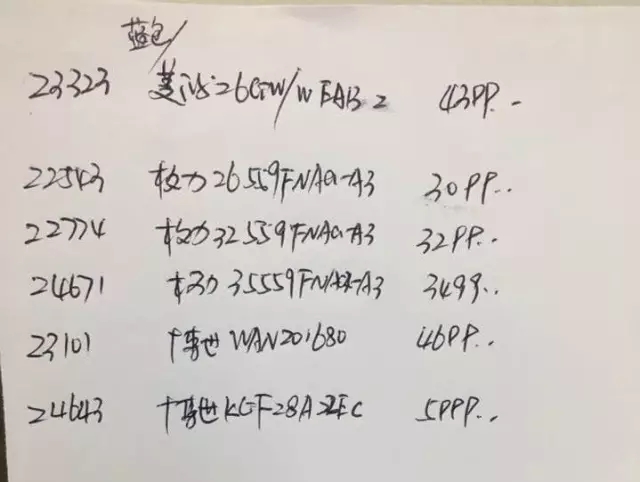 蓝色/
23323 美的26GW/WEAB2 43PP..
22543 格力26559FNAa-A3 30PP..
22774 格力32559FNAa-A3 32PP..
24671 格力35559FNAa-A3 3499..
23101 博世WAN201680 46PP..
24643 博世KGF28A2EC 5PPP..